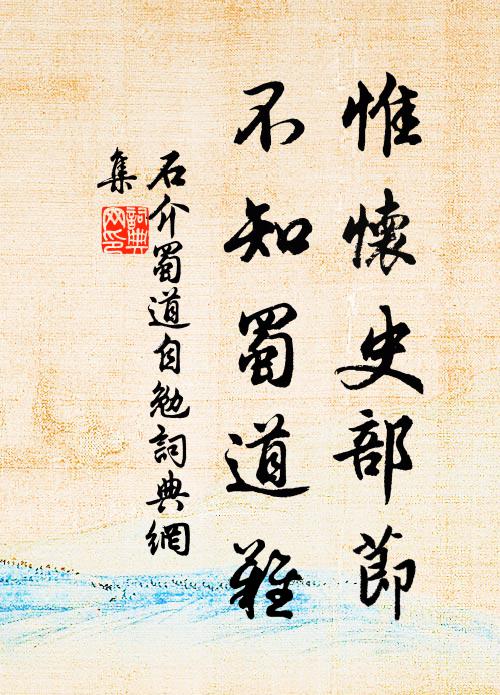 惟懷史部節
不知蜀道難
石介蜀道自勉詞典網
集
詞典
网印